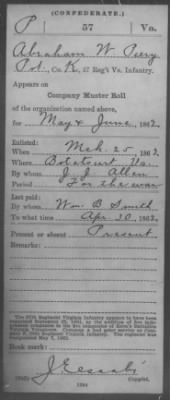 (CONFEDERATE.)
P 57 Va.
Abraham W. Peery
Pvt., Co. K, 57 Reg't Va. Infantry.
Appears on
Company Muster Roll
of the organization named above,
for May & June, 1862.
Enlisted:
When Mch. 25, 1862.
Where Botetourt Va.
By whom J. J. Allen
Period For the war
Last paid:
By whom Wm. B Smith
To what time Apr. 30, 1862.
Present or absent Present
Remarks:
Book mark:
Copyist.